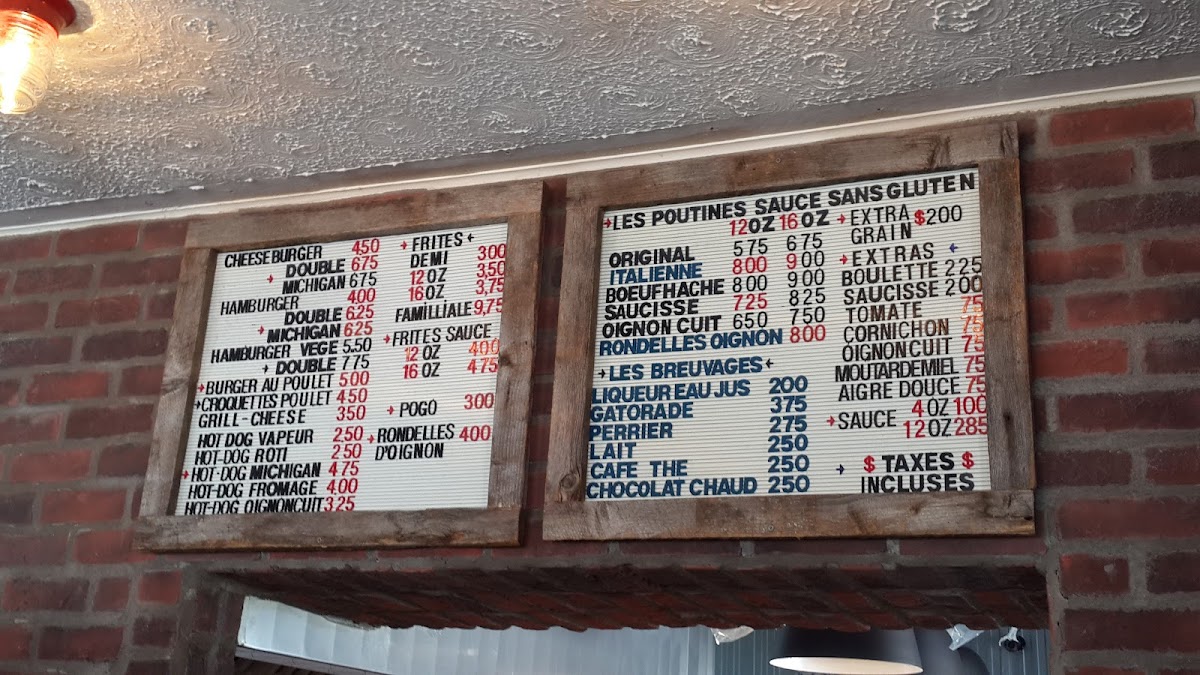 CHEESEBURGER 450
→ DOUBLE 675
MICHIGAN 675
HAMBURGER 400
DOUBLE 6.25
→ MICHIGAN 6.25
HAMBURGER VEGE 5.50
→ DOUBLE 775
→BURGER AU POULET 500
→CROQUETTES POULET 450
GRILL-CHEESE 350
HOT DOG VAPEUR 250
HOT-DOG ROTI 250
→HOT-DOG MICHIGAN 475
HOT-DOG FROMAGE 400
HOT-DOG OIGNONCUIT 3.25
→ FRITES ←
DEMI 300
12 OZ 3,50
16 OZ 3,75
FAMILLIALE 9,75
→FRITES SAUCE
12 OZ 400
16 OZ 475
→ POGO 300
→RONDELLES 400
D'OIGNON
→LES POUTINES SAUCE SANS GLUTEN
12OZ 16 OZ
ORIGINAL 575 675
ITALIENNE 800 900
BOEUFHACHE 800 900
SAUCISSE 725 825
OIGNON CUIT 650 750
RONDELLES OIGNON 800
→ LES BREUVAGES ←
LIQUEUR EAU JUS 200
GATORADE 375
PERRIER 275
LAIT 250
CAFE THE 250
CHOCOLAT CHAUD 250
→EXTRA $200
GRAIN
→EXTRAS ←
BOULETTE 225
SAUCISSE 200
TOMATE 75
CORNICHON 75
OIGNONCUIT 75
MOUTARDEMIEL 75
AIGRE DOUCE 75
→SAUCE 4 OZ 100
12 OZ 285
→ $ TAXES $
INCLUSES